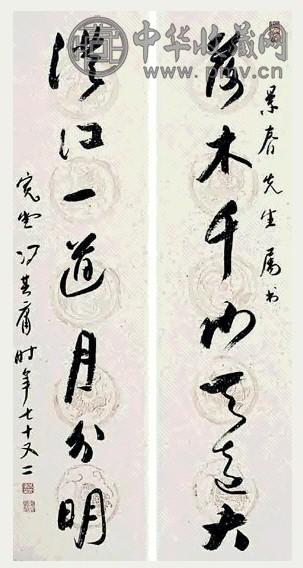 景春先生属书
落木千山天远大
澄江一道月分明
宽堂冯其庸时年七十又二
中华收藏网
www.pmv.cn